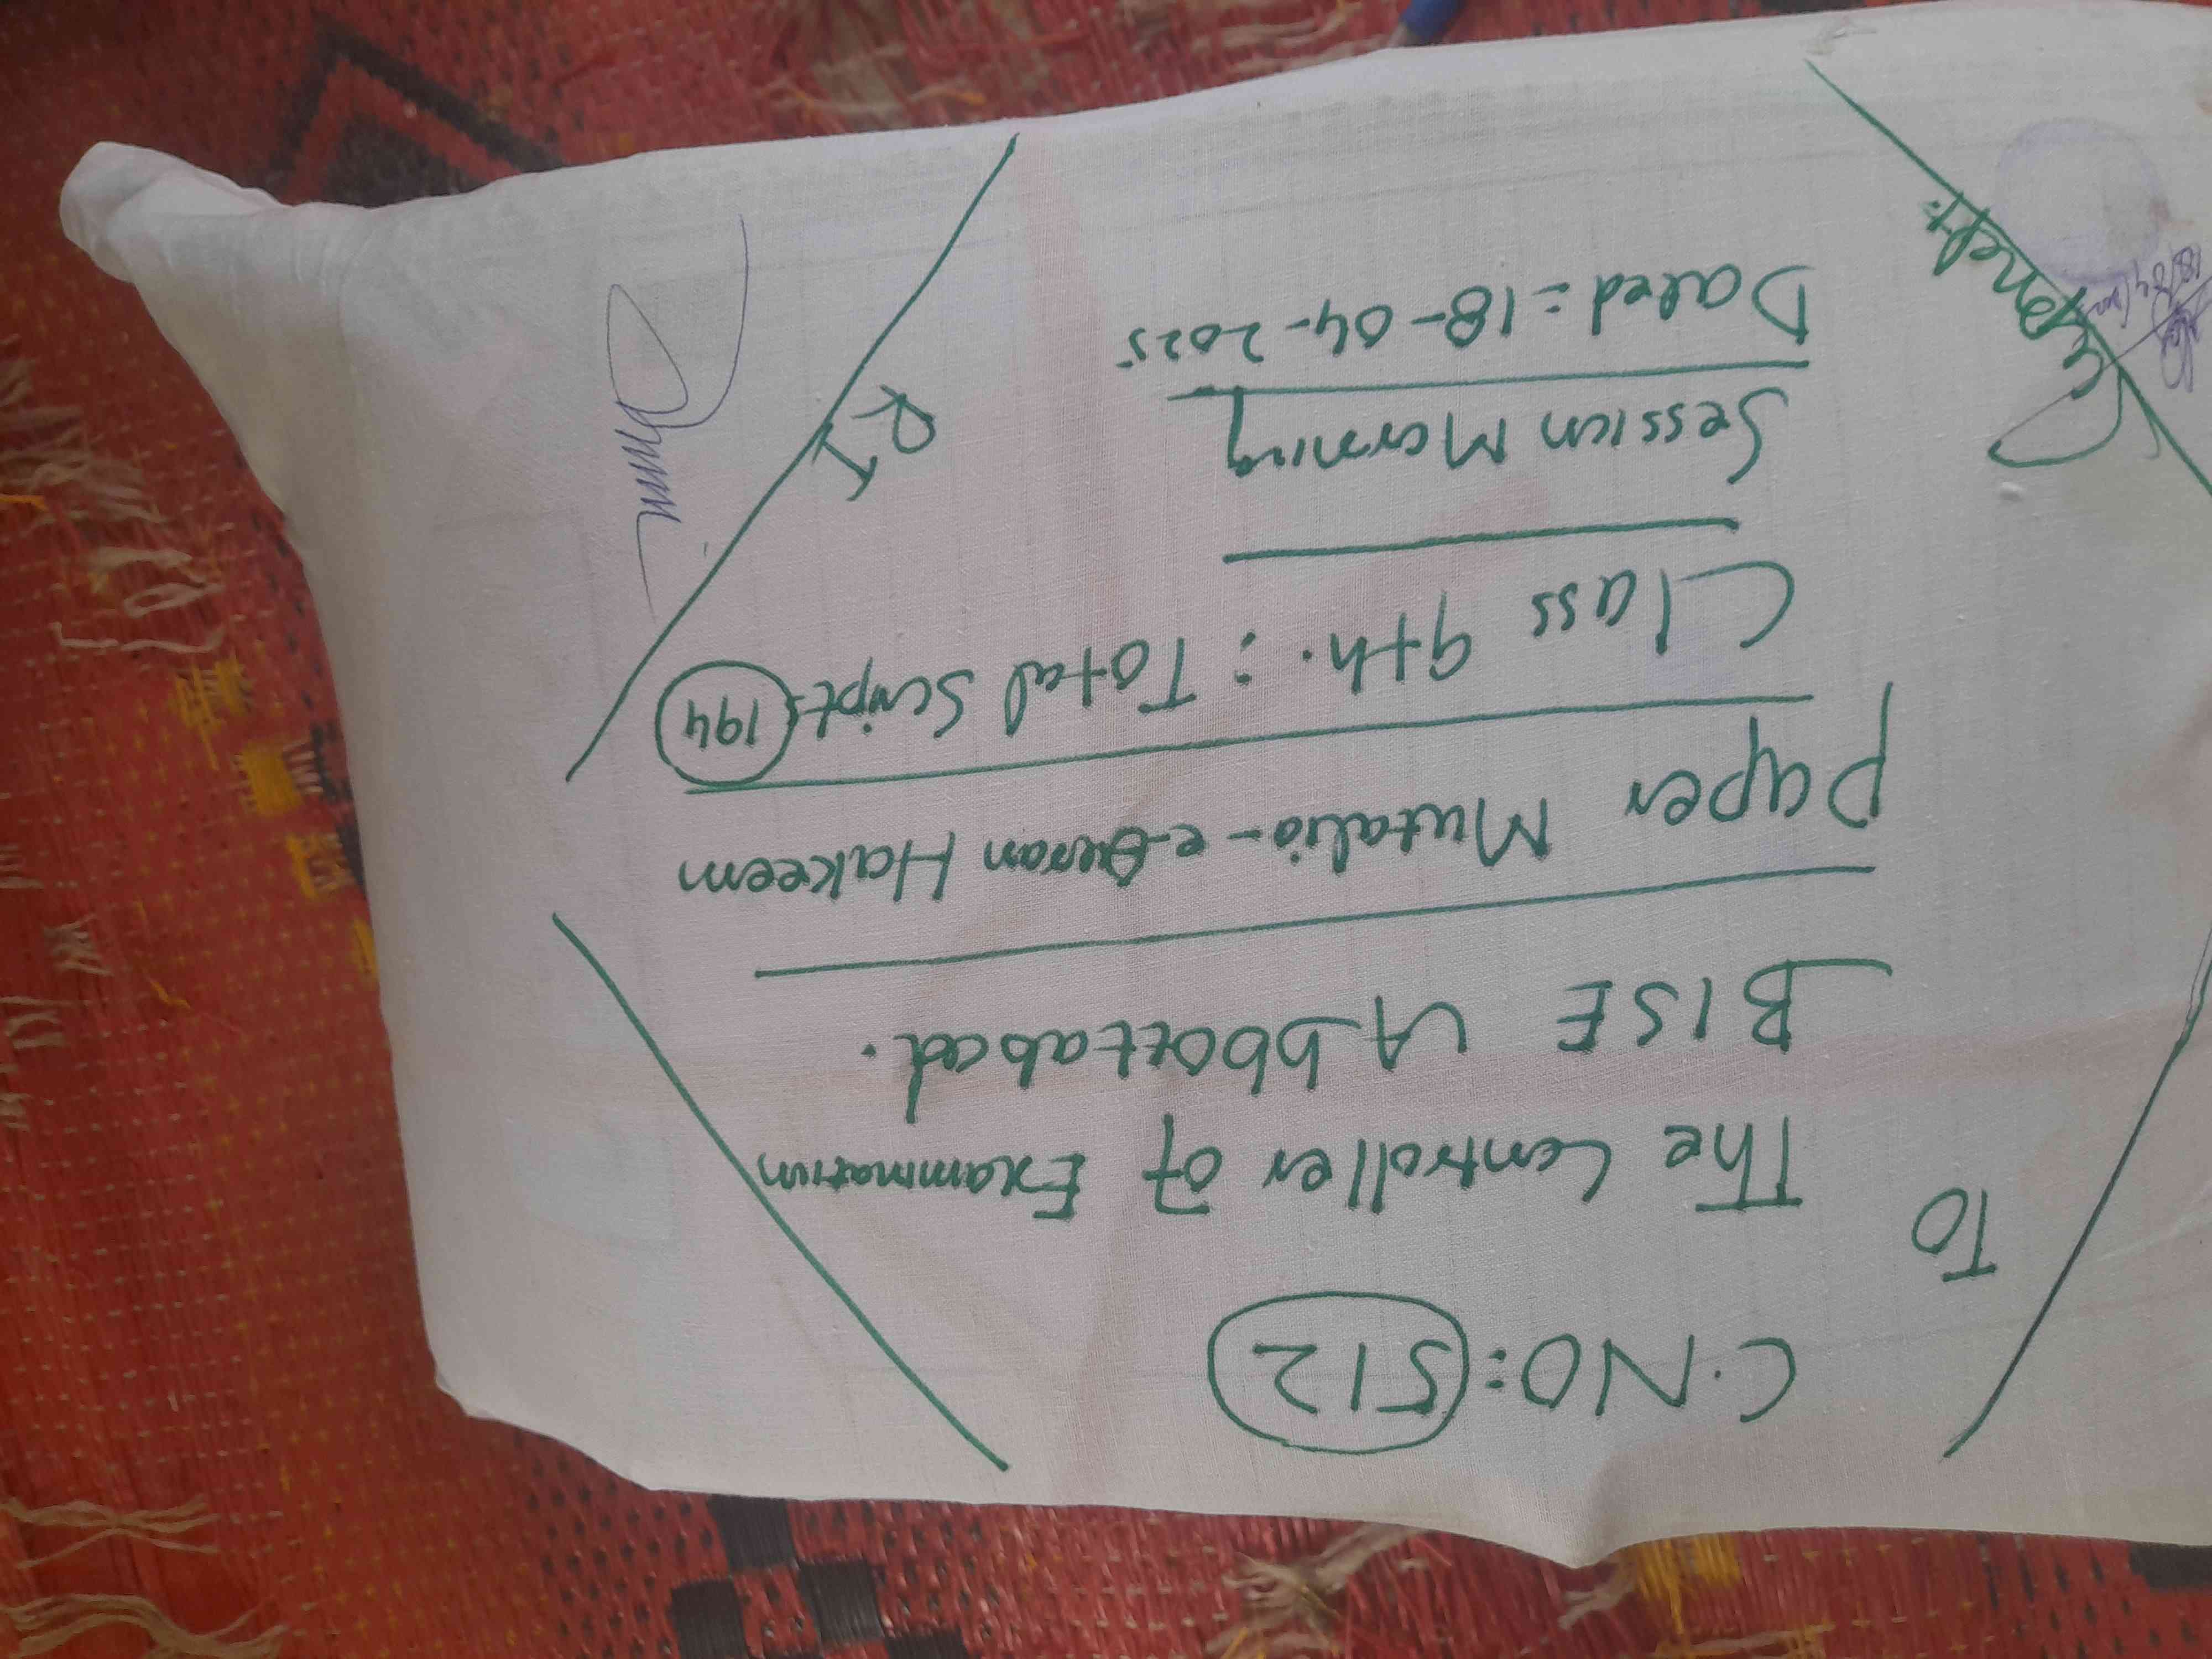 C.NO: 512
To
The Controller of Examination
BISE Abbottabad.
Paper Mutalia-e-Quran Hakeem
Class 9th. : Total Script: 194
Session Morning
Dated = 18-04-2025
RI
Supndt: